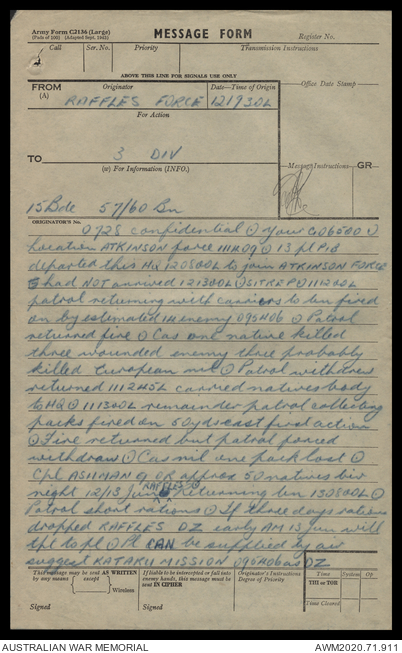 Army Form C2136 (Large)
MESSAGE FORM
Register No.
Call
Ser. No.
Priority
Transmission Instructions
ABOVE THIS LINE FOR SIGNALS USE ONLY
FROM
(A)
Originator
Date—Time of Origin
Office Date Stamp
RAFFLES FORCE 121930L
For Action
TO
3 DIV
(w) For Information (INFO.)
Message Instructions
GR
15 Bde 57/60 Bn
ORIGINATOR'S No.
0928 confidential ⊙ your GO6500 ⊙
location ATKINSON force 111209 ⊙ 13 pl PIB
departed this HQ 120800L to join ATKINSON FORCE
had NOT arrived 121300L ⊙ SITREP ⊙ 111200L
patrol returning with carriers to bn fired
on by estimated 14 enemy 095406 ⊙ Patrol
returned fire ⊙ Cas one native killed
three wounded enemy three probably
killed European nil ⊙ Patrol withdrew
returned 111245L carried natives body
to HQ ⊙ 111300L remainder patrol collecting
packs fired on 50 yds east first action
⊙ Fire returned but patrol forced
withdraw ⊙ Cas nil one pack lost ⊙
Cpl ASHMAN 9 OR approx 50 natives biv
night 12/13 Jun RAFFLES ⊙ returning bn 130800L ⊙
Patrol short rations ⊙ If three days rations
dropped RAFFLES DZ early AM 13 Jun will
tpt to pl ⊙ Pl CAN be supplied by air
suggest KATAKU MISSION 096406 as DZ
This message may be sent AS WRITTEN
by any means (except) Wireless
If liable to be intercepted or fall into
enemy hands, this message must be
sent IN CIPHER
Originator's Instructions
Degree of Priority
Time
System
Op
THI or TOR
Time Cleared
Signed
Signed
AUSTRALIAN WAR MEMORIAL
AWM2020.71.911